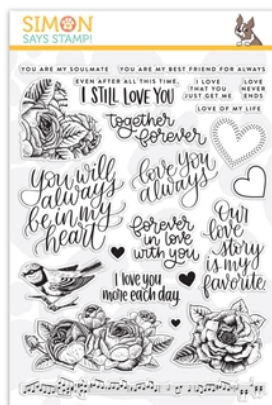 SIMON
SAYS STAMP!
YOU ARE MY SOULMATE
YOU ARE MY BEST FRIEND FOR ALWAYS
EVEN AFTER ALL THIS TIME,
I STILL LOVE YOU
I LOVE
THAT YOU
JUST GET ME
LOVE
NEVER
ENDS
LOVE OF MY LIFE
together
forever
you will
always
be in my
heart
love you
always
forever
in love
with you
Our
love
story
is my
favorite
I love you
more each day